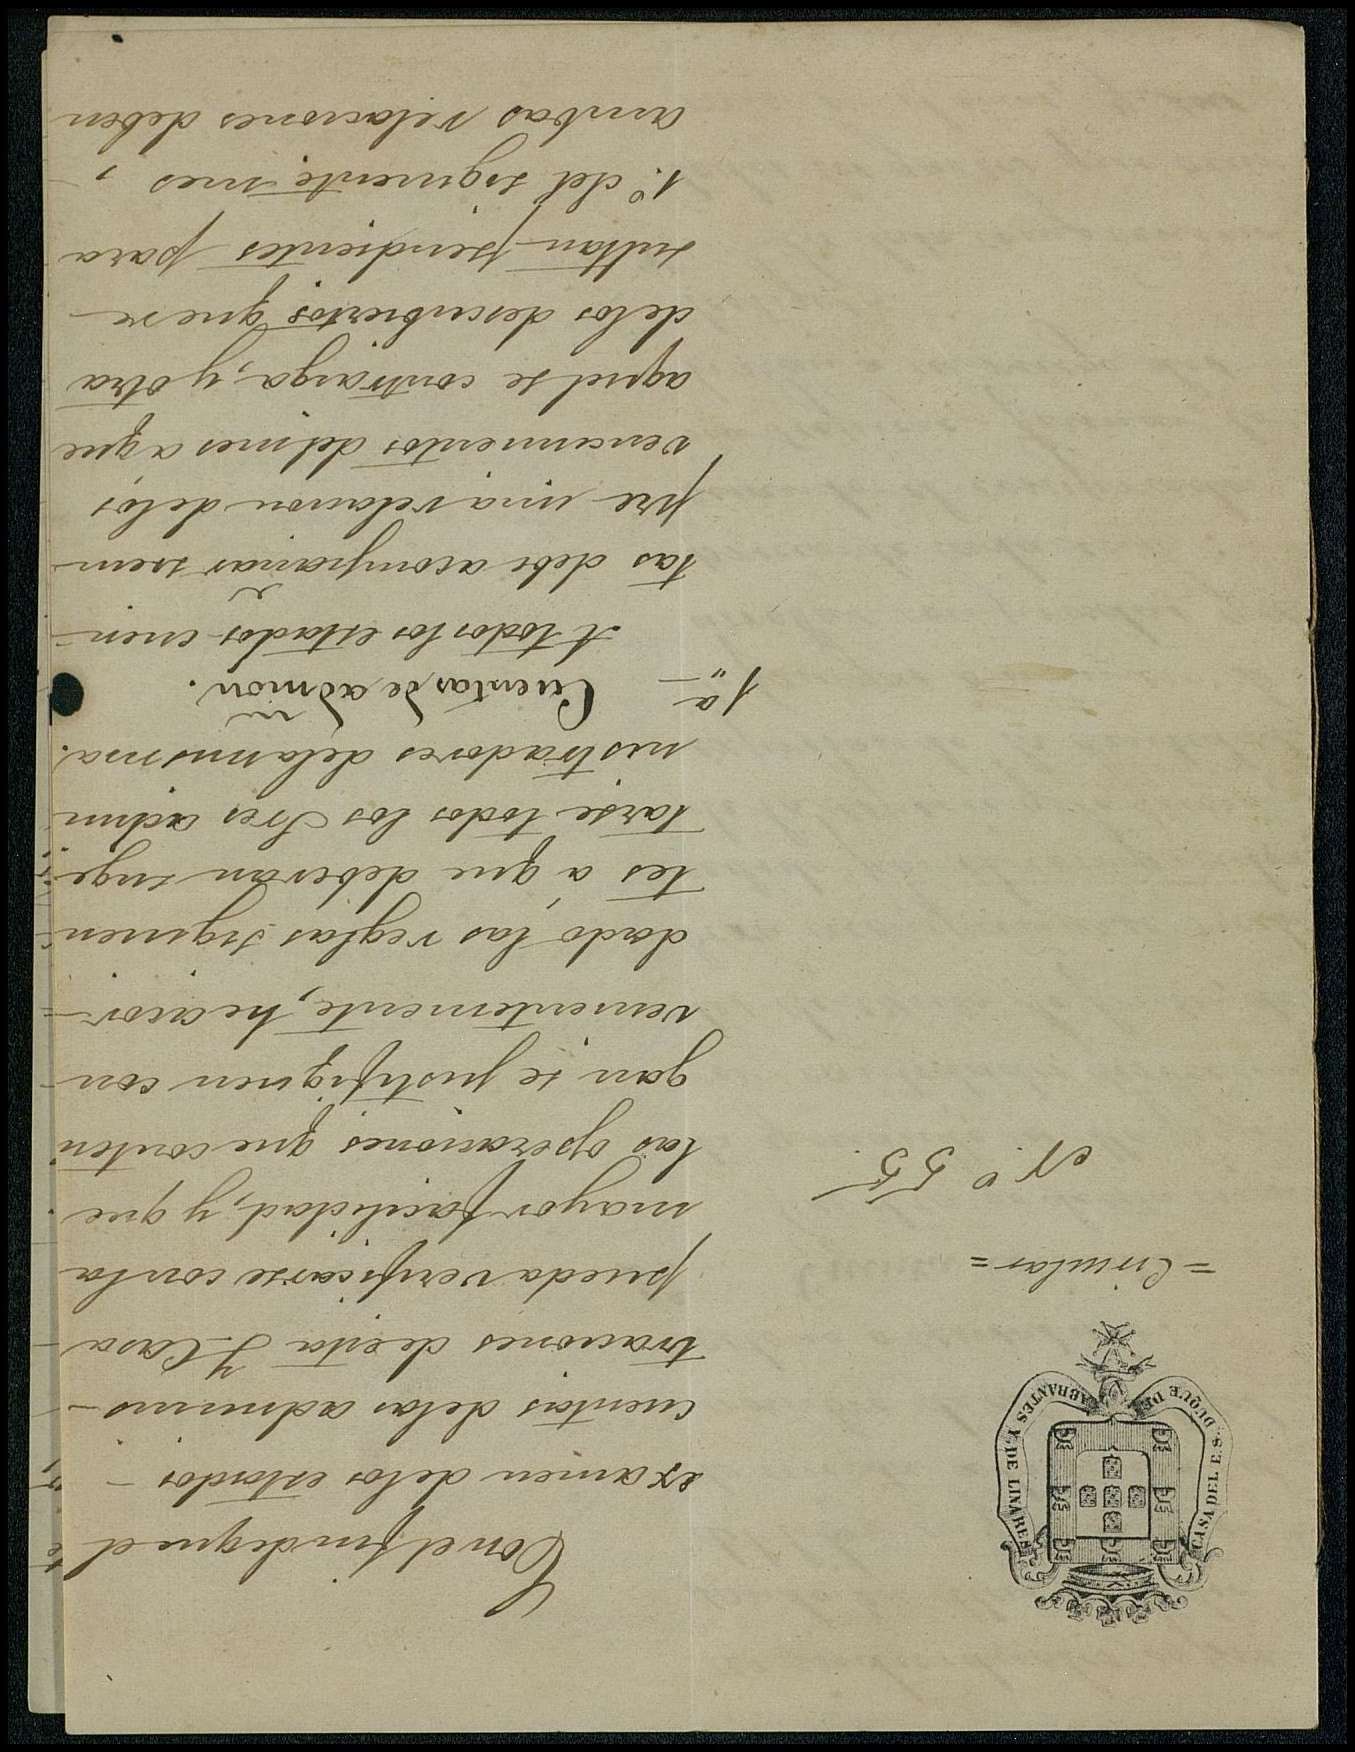 CASA DEL E.S. DUQUE DE ABRANTES Y DE LINARES
= Circular =
N.º 55
Con el fin de que el
examen de los estados -
cuentas de las adminis-
traciones de esta Y. Casa
pueda verificarse con la
mayor facilidad, y que
las operaciones que conten
gan se justifiquen con-
venientemente, he acor-
dado las reglas siguien
tes á que deberan suge
tarse todos los Sres admi
nistradores de la misma.
1ª Cuentas de admon.
A todos los estados cuen-
tas debe acompañar siem-
pre una relacion de los
vencimientos del mes a que
aquel se contraiga, y otra
de los descubiertos que re-
sultan pendientes para
1.º del siguiente mes,
ambas relaciones deben